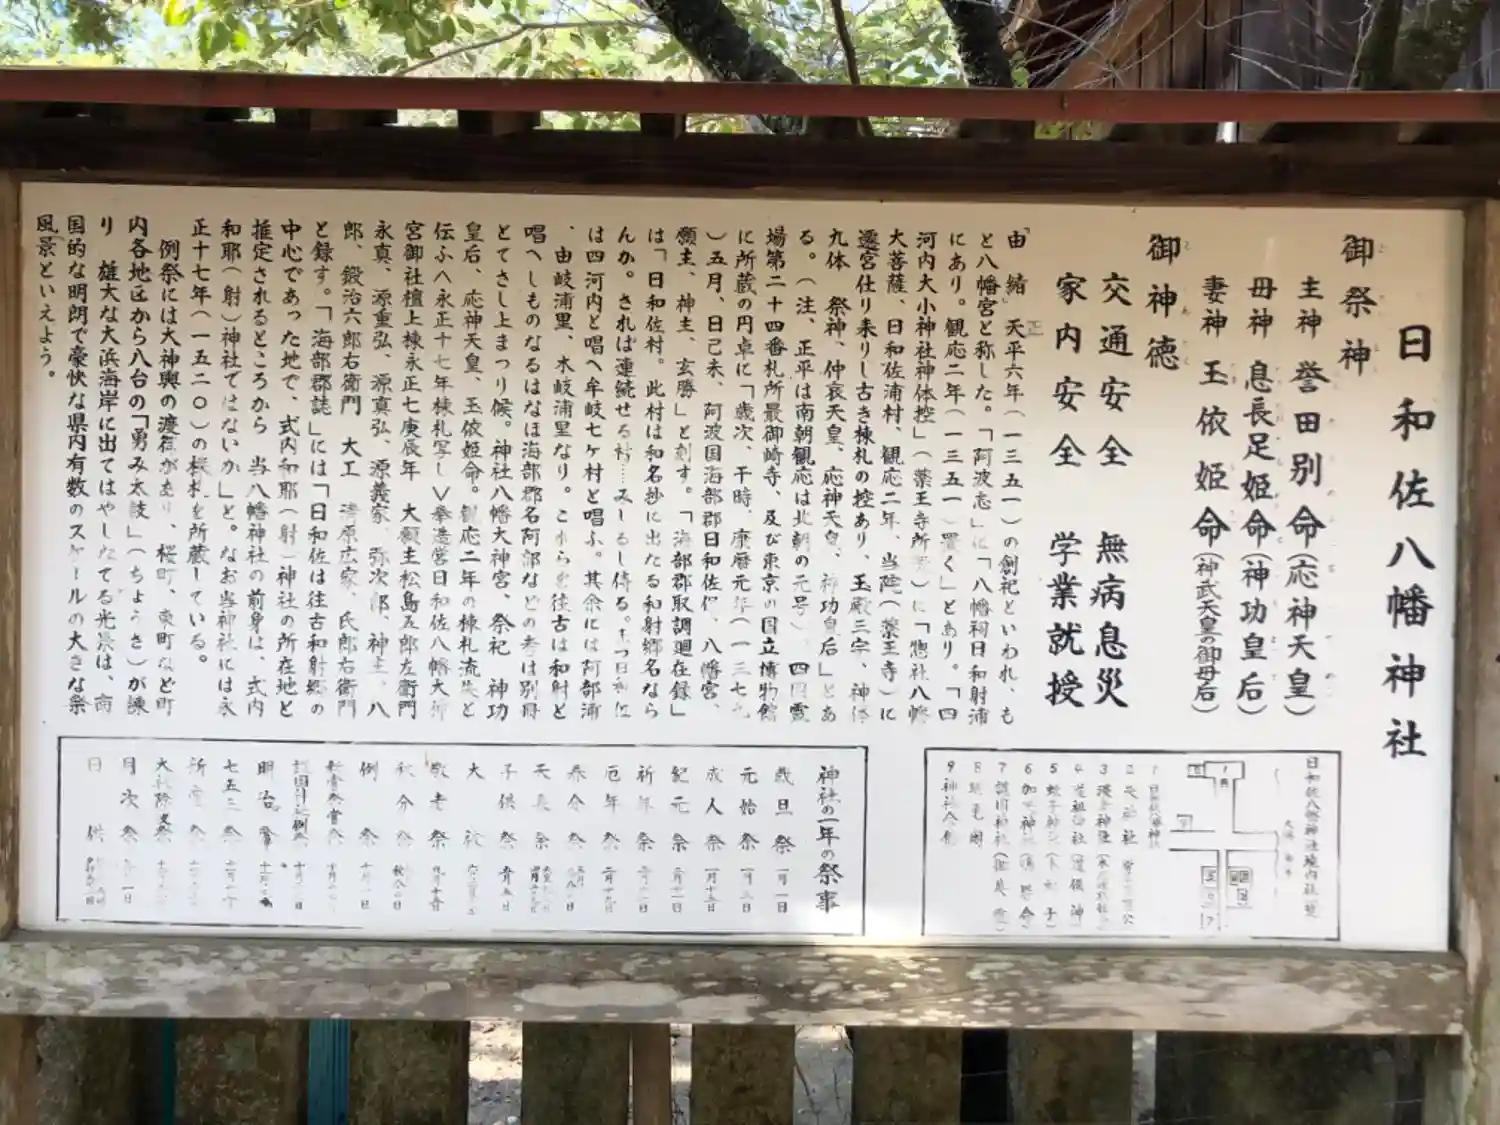 日和佐八幡神社
御祭神
主神 誉田別命(応神天皇)
母神 息長足姫命(神功皇后)
妻神 玉依姫命(神武天皇の御母后)
御神徳
交通安全 無病息災
家内安全 学業就授
「由 緒」 天平六年(一三五一)の創祀といわれ、も
と八幡宮と称した。「阿波志」に「八幡祠日和射浦
にあり。観応二年(一三五一)置く」とあり。「四
河内大小神社神体控」(薬王寺所)に「惣社八幡
大菩薩、日和佐浦村、観応二年、当陀(薬王寺)に
遷宮仕り来りし古き棟札の控あり、玉殿三宇、神体
九体 祭神、仲哀天皇、応神天皇、神功皇后」とあ
る。(注、正平は南朝観応は北朝の元号)、四国霊
場第二十四番札所最御崎寺、及び東京の国立博物館
に所蔵の円卓に「歳次、干時、康暦元年(一三七九
)五月、日己未、阿波国海部郡日和佐、八幡宮、
願主、神主、玄勝」と刻す。「海部郡取調廻在録」
は「日和佐村。此村は和名抄に出たる和射郷名なら
んか。されば連続せる
は四河内と唱へ牟岐七ケ村と唱ふ。其余には阿部浦
、由岐浦里、木岐浦里なり。これらを往古は和射と
唱へしものなるはなほ海部郡名阿部などの考は別冊
とてさし上まつり候。神社八幡大神宮、祭祀 神功
皇后、応神天皇、玉依姫命。観応二年の棟札流失と
伝ふへ永正十七年棟札写し∨奉造営日和佐八幡大神
宮御社檀上棟永正七庚辰年 大願主松島五郎左衛門
永真、源重弘、源真弘、源義家、弥次郎、神主、八
郎、鍛治六郎右衛門 大工 清原広家、氏郎右衛門
と録す。「海部郡誌」には「日和佐は往古和射郷の
中心であった地で、式内和耶(射)神社の所在地と
推定されるところから 当八幡神社の前身は、式内
和耶(射)神社ではないか」と。なお当神社には永
正十七年(一五二〇)の棟札を所蔵している。
例祭には大神輿の渡御があり、桜町、東町など町
内各地区から八台の「勇み太鼓」(ちょうさ)が練
り 雄大な大浜海岸に出てはやしたてる光景は、南
国的な明朗で豪快な県内有数のスケールの大きな祭
風景といえよう。
日和佐八幡神社境内社地
1 日和佐八幡神社
5 蛭子神社(木和子)
9 神社会館
神社の一年の祭事
歳旦祭 一月一日
元始祭 一月三日
成人祭 一月十五日
紀元祭 二月十一日
祈年祭
厄年祭
春分祭
天長祭
子供祭 五月五日
大祓
敬老祭 九月十五日
秋分祭
例祭
新嘗祭
明治祭
七五三祭
月次祭
日供